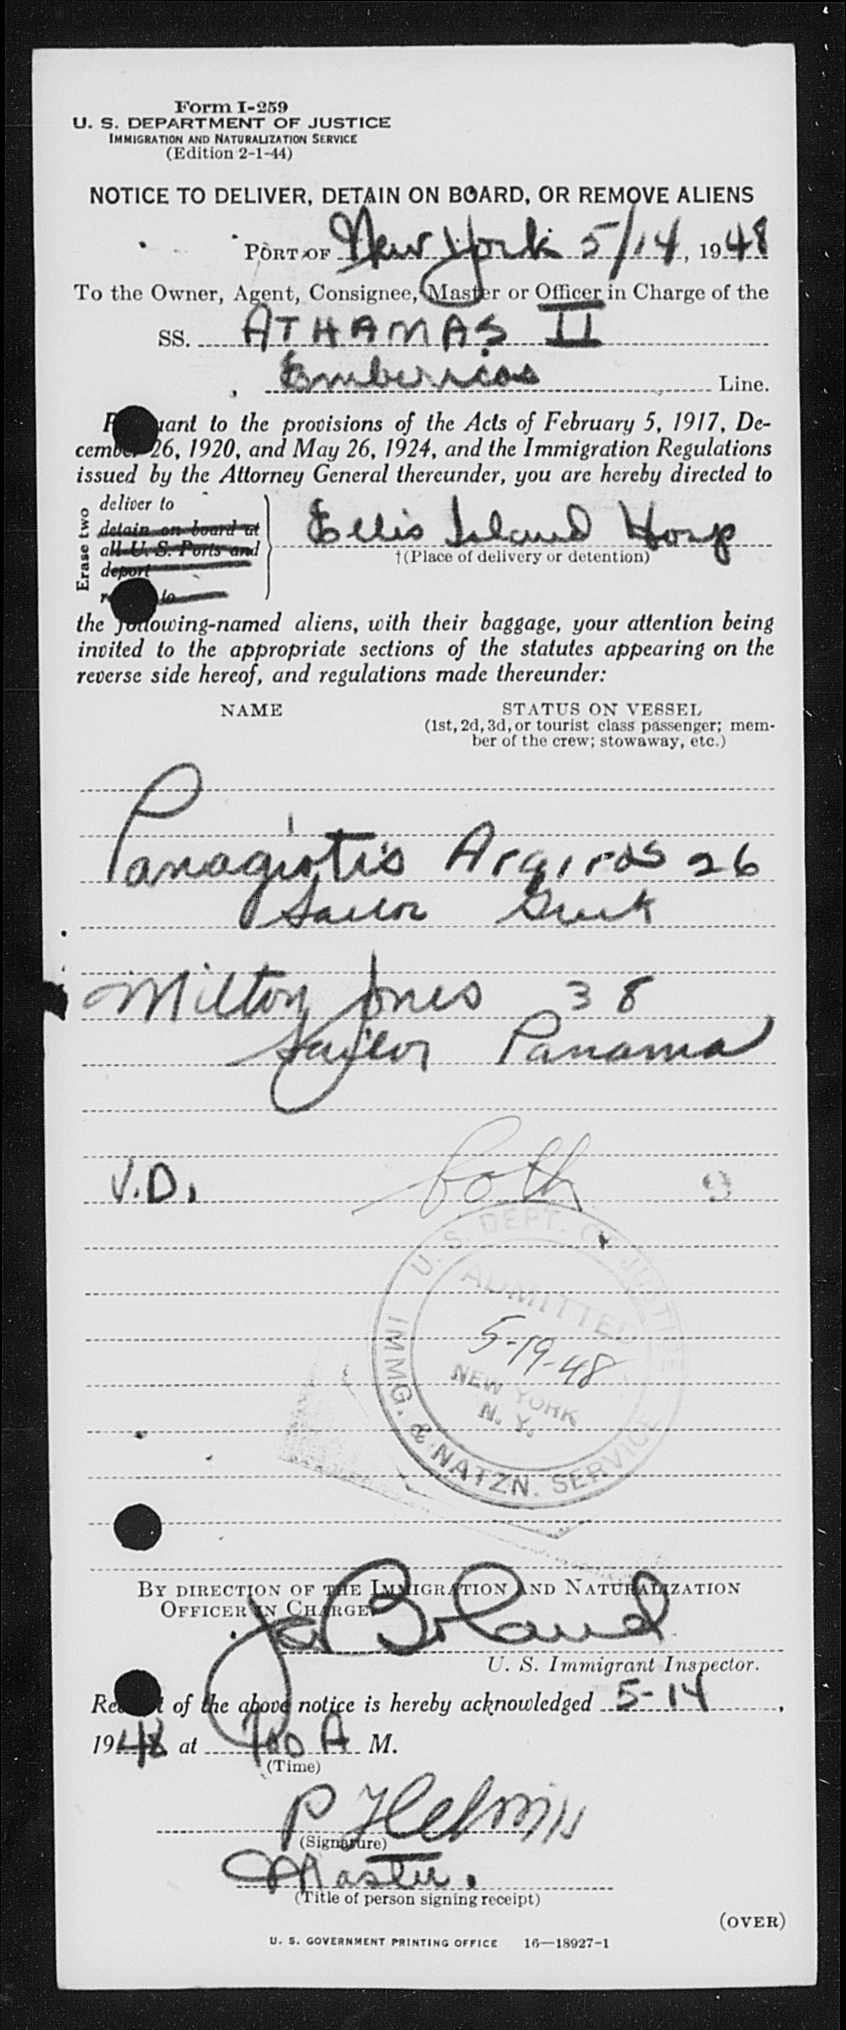 Form I-259
U. S. DEPARTMENT OF JUSTICE
IMMIGRATION AND NATURALIZATION SERVICE
(Edition 2-1-44)
NOTICE TO DELIVER, DETAIN ON BOARD, OR REMOVE ALIENS
PORT OF New York 5/14, 1948
To the Owner, Agent, Consignee, Master or Officer in Charge of the
SS. ATHAMAS II
Embericos Line.
to the provisions of the Acts of February 5, 1917, De-
cember 26, 1920, and May 26, 1924, and the Immigration Regulations
issued by the Attorney General thereunder, you are hereby directed to
Erase two
deliver to
detain on board at
all U. S. Ports and
deport
to
Ellis Island Hosp
†(Place of delivery or detention)
the following-named aliens, with their baggage, your attention being
invited to the appropriate sections of the statutes appearing on the
reverse side hereof, and regulations made thereunder:
NAME STATUS ON VESSEL
(1st, 2d, 3d, or tourist class passenger; mem-
ber of the crew; stowaway, etc.)
Panagiotis Argiros 26
Sailor Greek
Milton Jones 38
Sailor Panama
V.D. both 9
U. S. DEPT. OF JUSTICE
ADMITTED
5-19-48
NEW YORK
N. Y.
IMMG. & NATZN. SERVICE
BY DIRECTION OF THE IMMIGRATION AND NATURALIZATION
OFFICER IN CHARGE
Boland
U. S. Immigrant Inspector.
of the above notice is hereby acknowledged 5-14,
1948 at A M.
(Time)
P
(Signature)
Master.
(Title of person signing receipt)
(OVER)
U. S. GOVERNMENT PRINTING OFFICE 16—18927-1